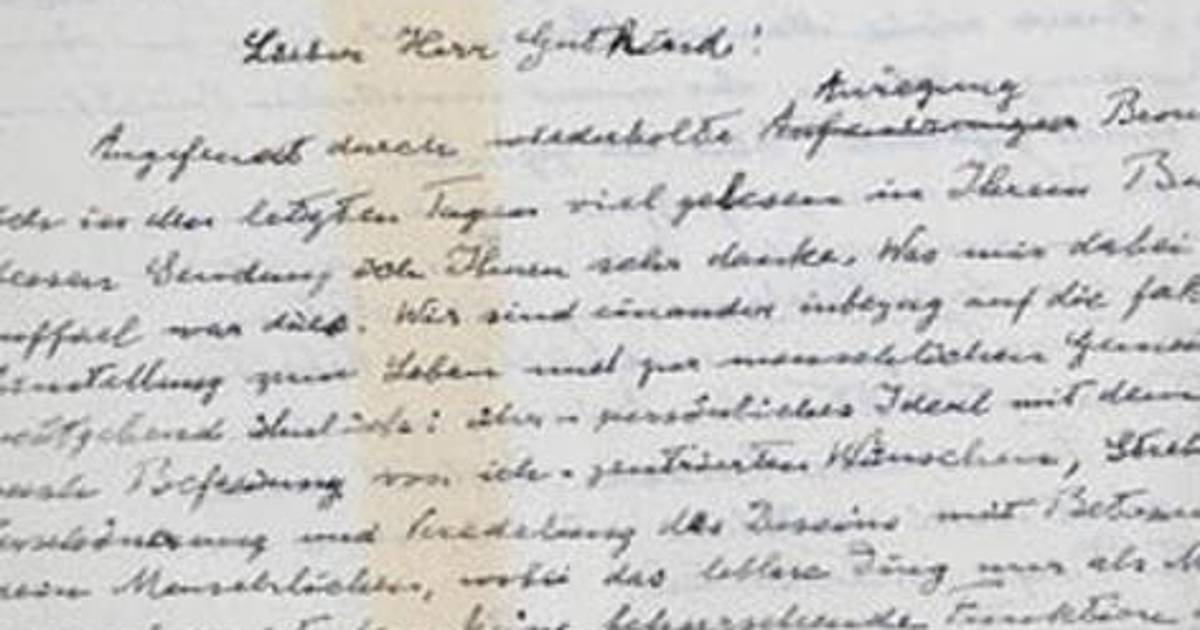 Lieber Herr Gutkind!
Anregung
Angefeuert durch wiederholte Aufmunterungen Brou
ich in den letzten Tagen viel gelesen in Ihrem Bu
dessen Sendung ich Ihnen sehr danke. Was mir dabei
auffiel war dies. Wir sind einander inbezug auf die fak
Einstellung zum Leben und zur menschlichen Gemei
weitgehend ähnlich: über-persönliches Ideal mit dem
nach Befreiung von ich-zentrierten Wünschen, Streb
Verschönerung und Veredelung des Daseins mit Beton
rein Menschlichen, wobei das leblose Ding nur als M
keine beherrschende Funktion